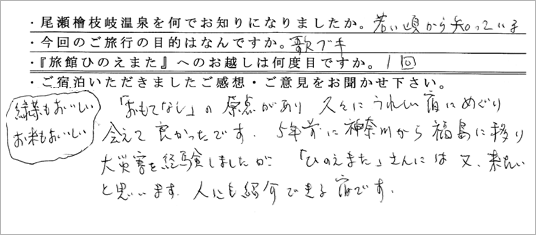 ・尾瀬檜枝岐温泉を何でお知りになりましたか。若い頃から知っている
・今回のご旅行の目的はなんですか。歌ブキ
・『旅館ひのえまた』へのお越しは何度目ですか。1回
・ご宿泊いただきましたご感想・ご意見をお聞かせ下さい。
緑茶もおいしい
お米もおいしい
「おもてなし」の原点があり 久々にうれしい宿にめぐり
会えて良かったです。5年前に神奈川から福島に移り
大災害を経験しましたが 「ひのえまた」さんには又、来たい
と思います。人にも紹介できる宿です。